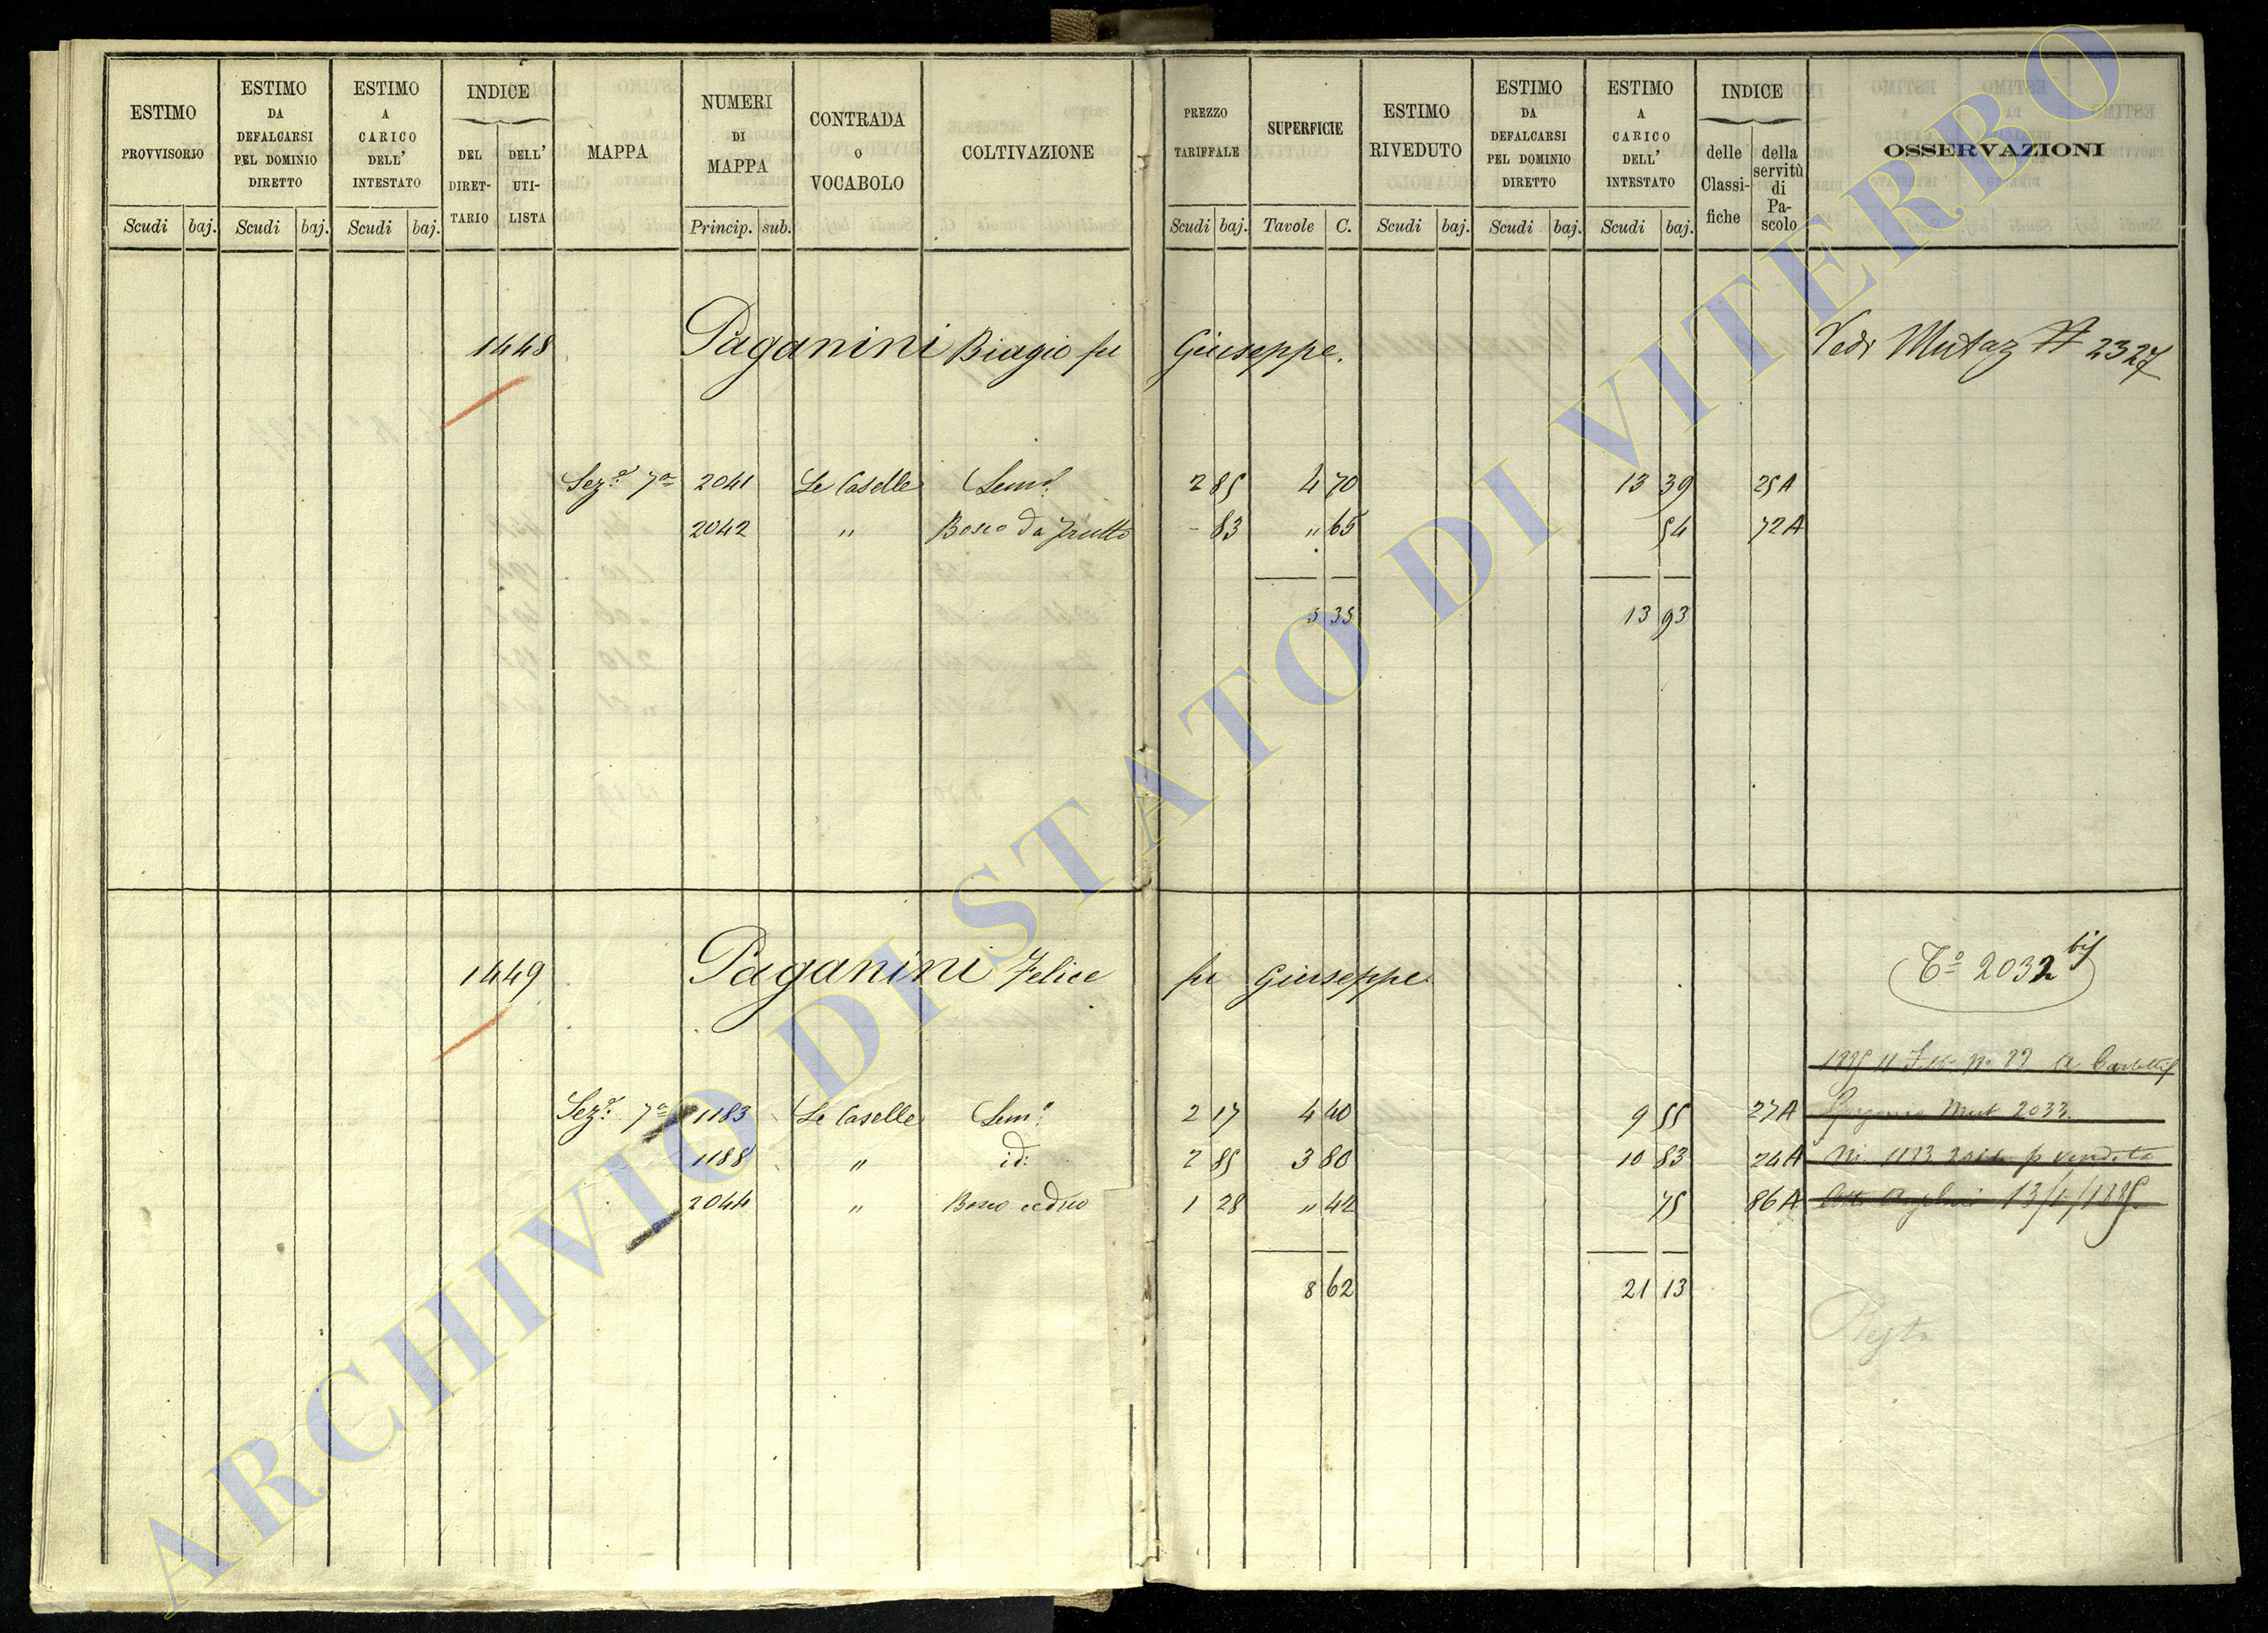 ESTIMO PROVVISORIO
ESTIMO DA DEFALCARSI PEL DOMINIO DIRETTO
ESTIMO A CARICO DELL' INTESTATO
INDICE
DEL DIRETTARIO
DELL' UTILISTA
MAPPA
NUMERI DI MAPPA
CONTRADA O VOCABOLO
COLTIVAZIONE
PREZZO TARIFFALE
SUPERFICIE
ESTIMO RIVEDUTO
ESTIMO DA DEFALCARSI PEL DOMINIO DIRETTO
ESTIMO A CARICO DELL' INTESTATO
INDICE
delle Classifiche
della servitù di Pascolo
OSSERVAZIONI
Scudi baj. Scudi baj. Scudi baj. Princip. sub. Scudi baj. Tavole C. Scudi baj. Scudi baj. Scudi baj.
1448 Paganini Biagio fu Giuseppe. Vedi Mutaz N 2327
Sez.e 7a 2041 Le Caselle Sem.o 2 85 4 70 13 39 25A
2042 " Bosco da frutto - 83 " 65 54 72A
5 35 13 93
1449 Paganini Felice fu Giuseppe. To 2032 bis
Sez.e 7a 1183 Le Caselle Sem.o 2 17 4 40 9 55 27A Mut 2033.
1188 " id: 2 85 3 80 10 83 24A N. 1183 p vendita
2044 " Bosco ceduo 1 28 " 42 75 86A
8 62 21 13
Resta
ARCHIVIO DI STATO DI VITERBO